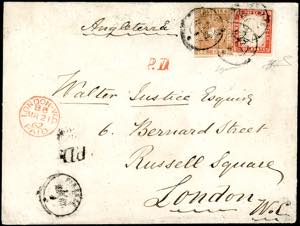 Angleterre
P.D.
Walter Justice Esquire
6. Bernard Street
Russell Square
London
W.C.
LONDON
PAID
P.D.